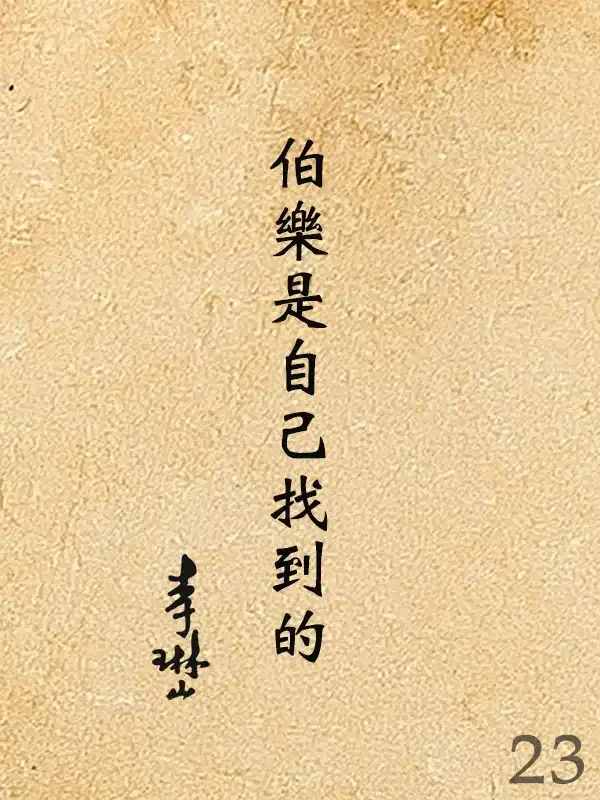 伯樂是自己找到的
李琳山
23